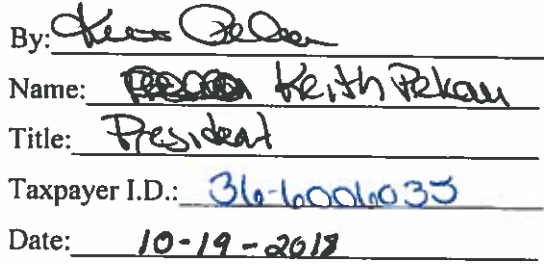 By:
Name: Keith Pekau
Title: President
Taxpayer I.D.: 36-6006035
Date: 10-19-2018